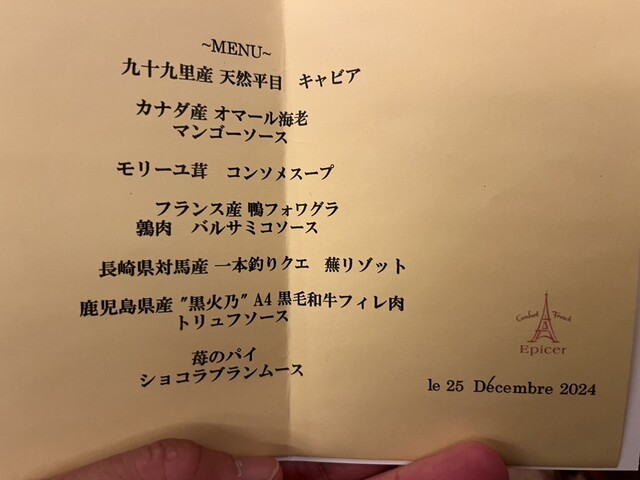 ~MENU~
九十九里産 天然平目　キャビア
カナダ産 オマール海老
マンゴーソース
モリーユ茸　コンソメスープ
フランス産 鴨フォワグラ
鶉肉　バルサミコソース
長崎県対馬産 一本釣りクエ　蕪リゾット
鹿児島県産 "黒火乃" A4 黒毛和牛フィレ肉
トリュフソース
苺のパイ
ショコラブランムース
Epicer
le 25 Décembre 2024